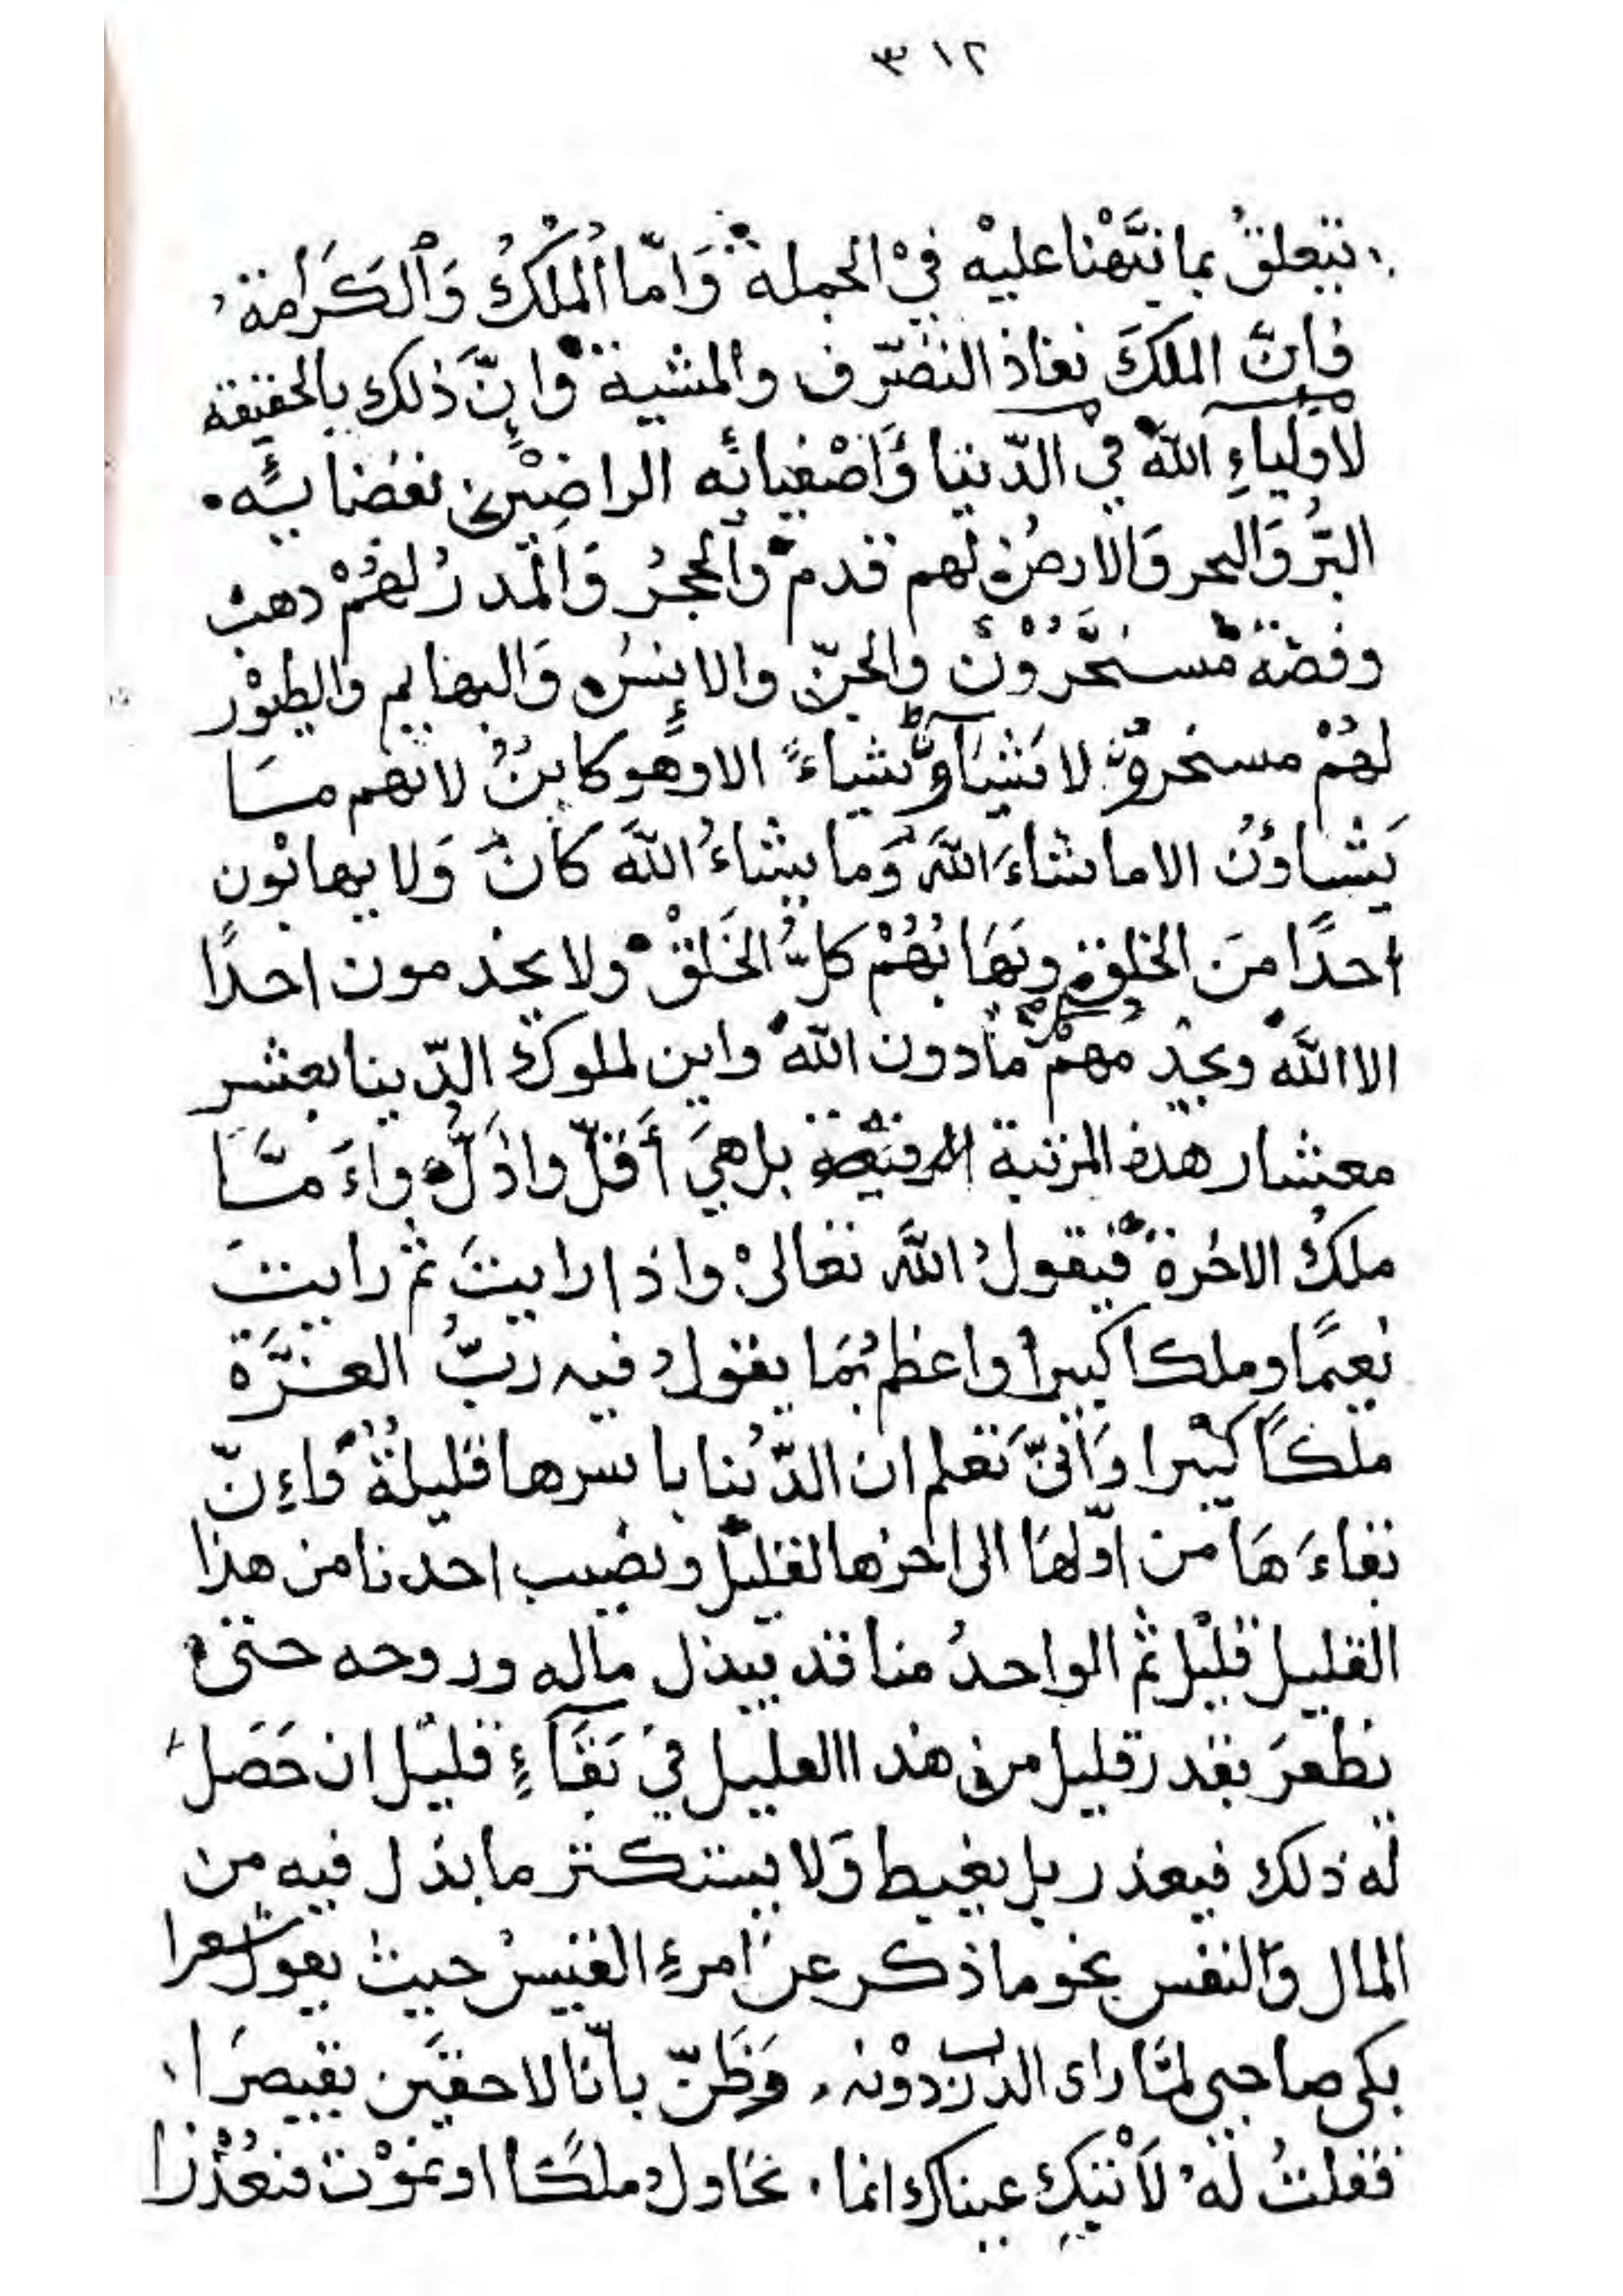 ٣١٢
تتعلقُ بما نبَّهْنا عليْه فيْ الجملة وَامّا المُلْكُ وَالكَرَامَة
فاِنَّ الملكَ نفاذ التصّرف والمشية وَاِنَّ ذلك بالحقيقة
لاَولياءِ اللهَ في الدّنيا وَاَصْفيائه الراضِيْن بقضائه
البّرُ وَالبحر وَالارضُ لهم قدم وَالحجرُ وَالمَدرُ لهُمْ ذهب
وفضة مُسخَّرُوْن والجنّ والاِنسُ وَالبهايم وَالطيُوْر
لهُمْ مسخرونَ لا يَشَاوُّن شياءً الا وهو كاينٌ لانهم مَا
يَشاوُنَ الا ما شاءَ اللهَ وَما يشاءُ اللهَ كانَ وَلا يهابُون
احدًا منَ الخلق ويَهَابُهُمْ كلُّ الخَلقْ ولا يخدمون احدًا
الا اللهَ ويخدمُهمْ مادون اللهَ واين لملوك الدّينا بعشر
معشار هذه المرتبة الرفيعة بل هيَ أقلّ واذلُّ واءَمَّا
ملكُ الاخرة فيقولُ اللهَ تعالىْ واذا رايتَ ثمَّ رايتَ
نعيمًا وملكا كبيرا واعظم بمَا يقول فيه ربُّ العزَّة
ملكًا كبيرا وَانّىَ تعلم ان الدّنيا باسرها قليلةٌ وَاءِنّ
بقاءَهَا من اوّلهَا الى اخرها لقليل ونصيب احدنا من هذا
القليل قليْل ثمّ الواحدُ منا قد يبذل ماله وروحه حتىْ
يظفرَ بقدر قليل من هذا القليل فيْ بَقَآءٍ قليْل ان حَصَلَ
له ذلك فيعذر بل يغبط وَلا يستكثر ما بذل فيه من
المال وَالنفس نحو ما ذكر عن امرءِ القيسْ حيث يقول شعرا
بكى صاحبي لمّا راى الدرب دوْنه، وَظَنّ بانّا لاحقيْن بقيصَرا
فقلتُ لهُ لاَتبكِ عيناك انما، نحاول ملكًا او نموْت فنعْذرا